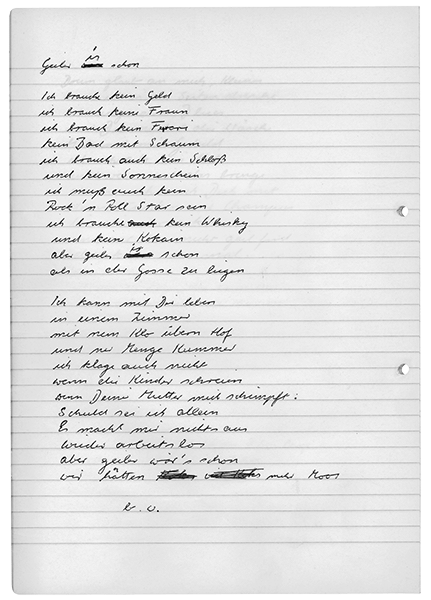 Geiler is schon
Ich brauche kein Geld
ich brauch keine Fraun
ich brauch kein
kein Bad mit Schaum
ich brauch auch kein Schloß
und kein Sonneschein
ich muß auch kein
Rock'n Roll Star sein
ich brauche kein Whisky
und kein Kokain
aber geiler is schon
als in der Gosse zu liegen
Ich kann mit Dir leben
in einem Zimmer
mit nem Klo übern Hof
und ne Menge Kummer
ich klage auch nicht
wenn die Kinder schrein
wenn Deine Mutter mich schimpft:
Schuld sei ich allein
Es macht mir nichts aus
wieder arbeitslos
aber geiler wär's schon
wir hätten mehr Moos